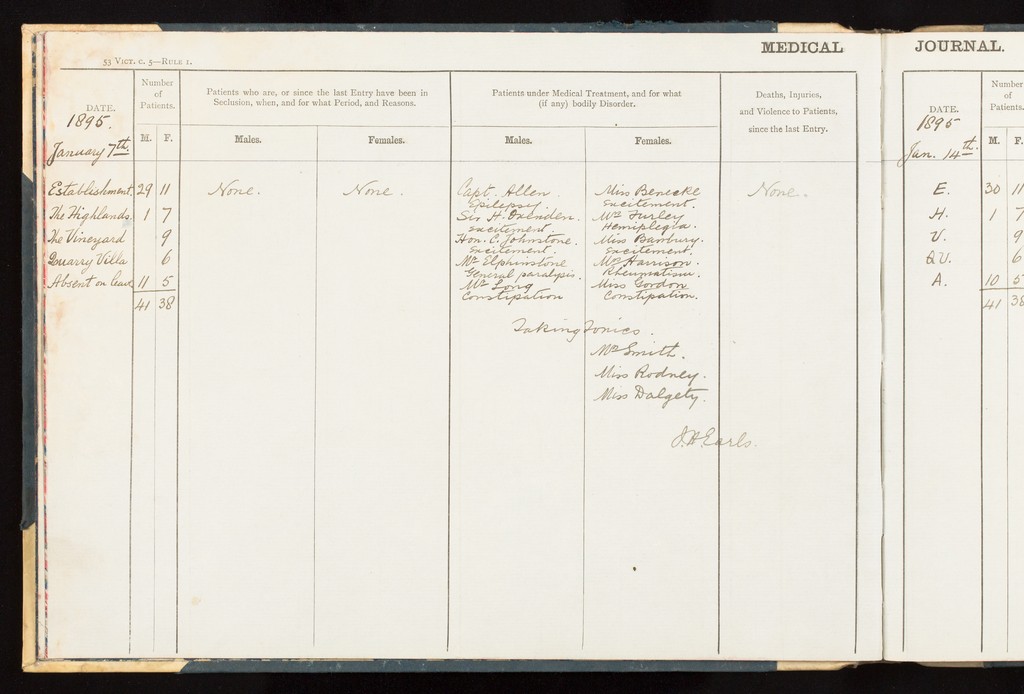 MEDICAL JOURNAL.
53 VICT. C. 5—RULE 1.
DATE.
1895.
January 7th.
Number
of
Patients.
M. F.
Patients who are, or since the last Entry have been in
Seclusion, when, and for what Period, and Reasons.
Males. Females.
Patients under Medical Treatment, and for what
(if any) bodily Disorder.
Males. Females.
Deaths, Injuries,
and Violence to Patients,
since the last Entry.
Establishment 29 11
The Highlands. 1 7
The Vineyard 9
Quarry Villa 6
Absent on leave 11 5
41 38
None. None.
Capt. Allen
Epilepsy.
Sir H. Oxenden.
Excitement.
Hon. C. Johnstone.
Excitement.
Mr Elphinstone
General paralysis.
Mr Long
Constipation
Miss Benecke
Excitement.
Mrs Furley
Hemiplegia.
Miss Banbury.
Excitement.
Mrs Harrison.
Rheumatism.
Miss Gordon
Constipation.
None.
Taking Tonics.
Mrs Smith.
Miss Rodney.
Miss Dalgety.
J.H. Earls.
DATE.
1895
Jan. 14th.
Number
of
Patients.
M. F.
E. 30 11
H. 1 7
V. 9
Q.V. 6
A. 10 5
41 38